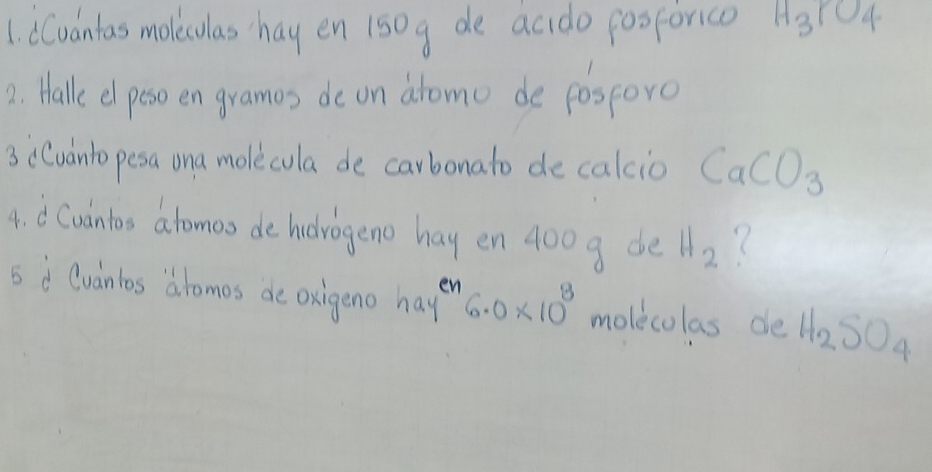 1. ¿Cuántas moléculas hay en 150g de ácido fosfórico H₃PO₄
2. Halle el peso en gramos de un átomo de fósforo
3 ¿Cuánto pesa una molécula de carbonato de calcio CaCO₃
4. ¿Cuántos átomos de hidrógeno hay en 400g de H₂?
5 ¿Cuántos átomos de oxígeno hay en 6.0×10⁸ moléculas de H₂SO₄